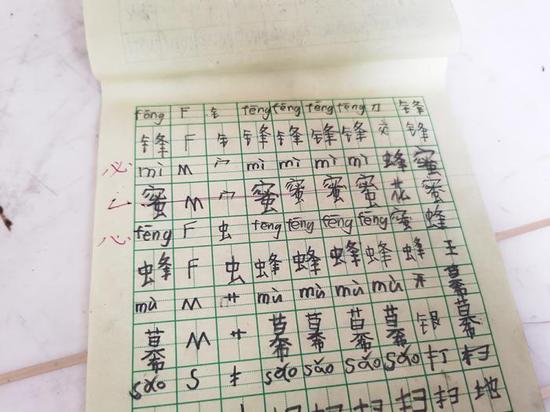 fēng F 钅 fēng fēng fēng fēng 刀 锋
锋 F 钅 锋 锋 锋 锋 锋
必 mì M 宀 mì mì mì mì 蜂 蜜
蜜 M 宀 蜜 蜜 蜜 蜜 花 蜜
心 fēng F 虫 fēng fēng fēng fēng 蜜 蜂
蜂 F 虫 蜂 蜂 蜂 蜂 蜂 王
mù M 艹 mù mù mù mù
M 艹 银
sǎo S 扌 sǎo sǎo sǎo sǎo 打 扫
扫 扫 扫 扫 地